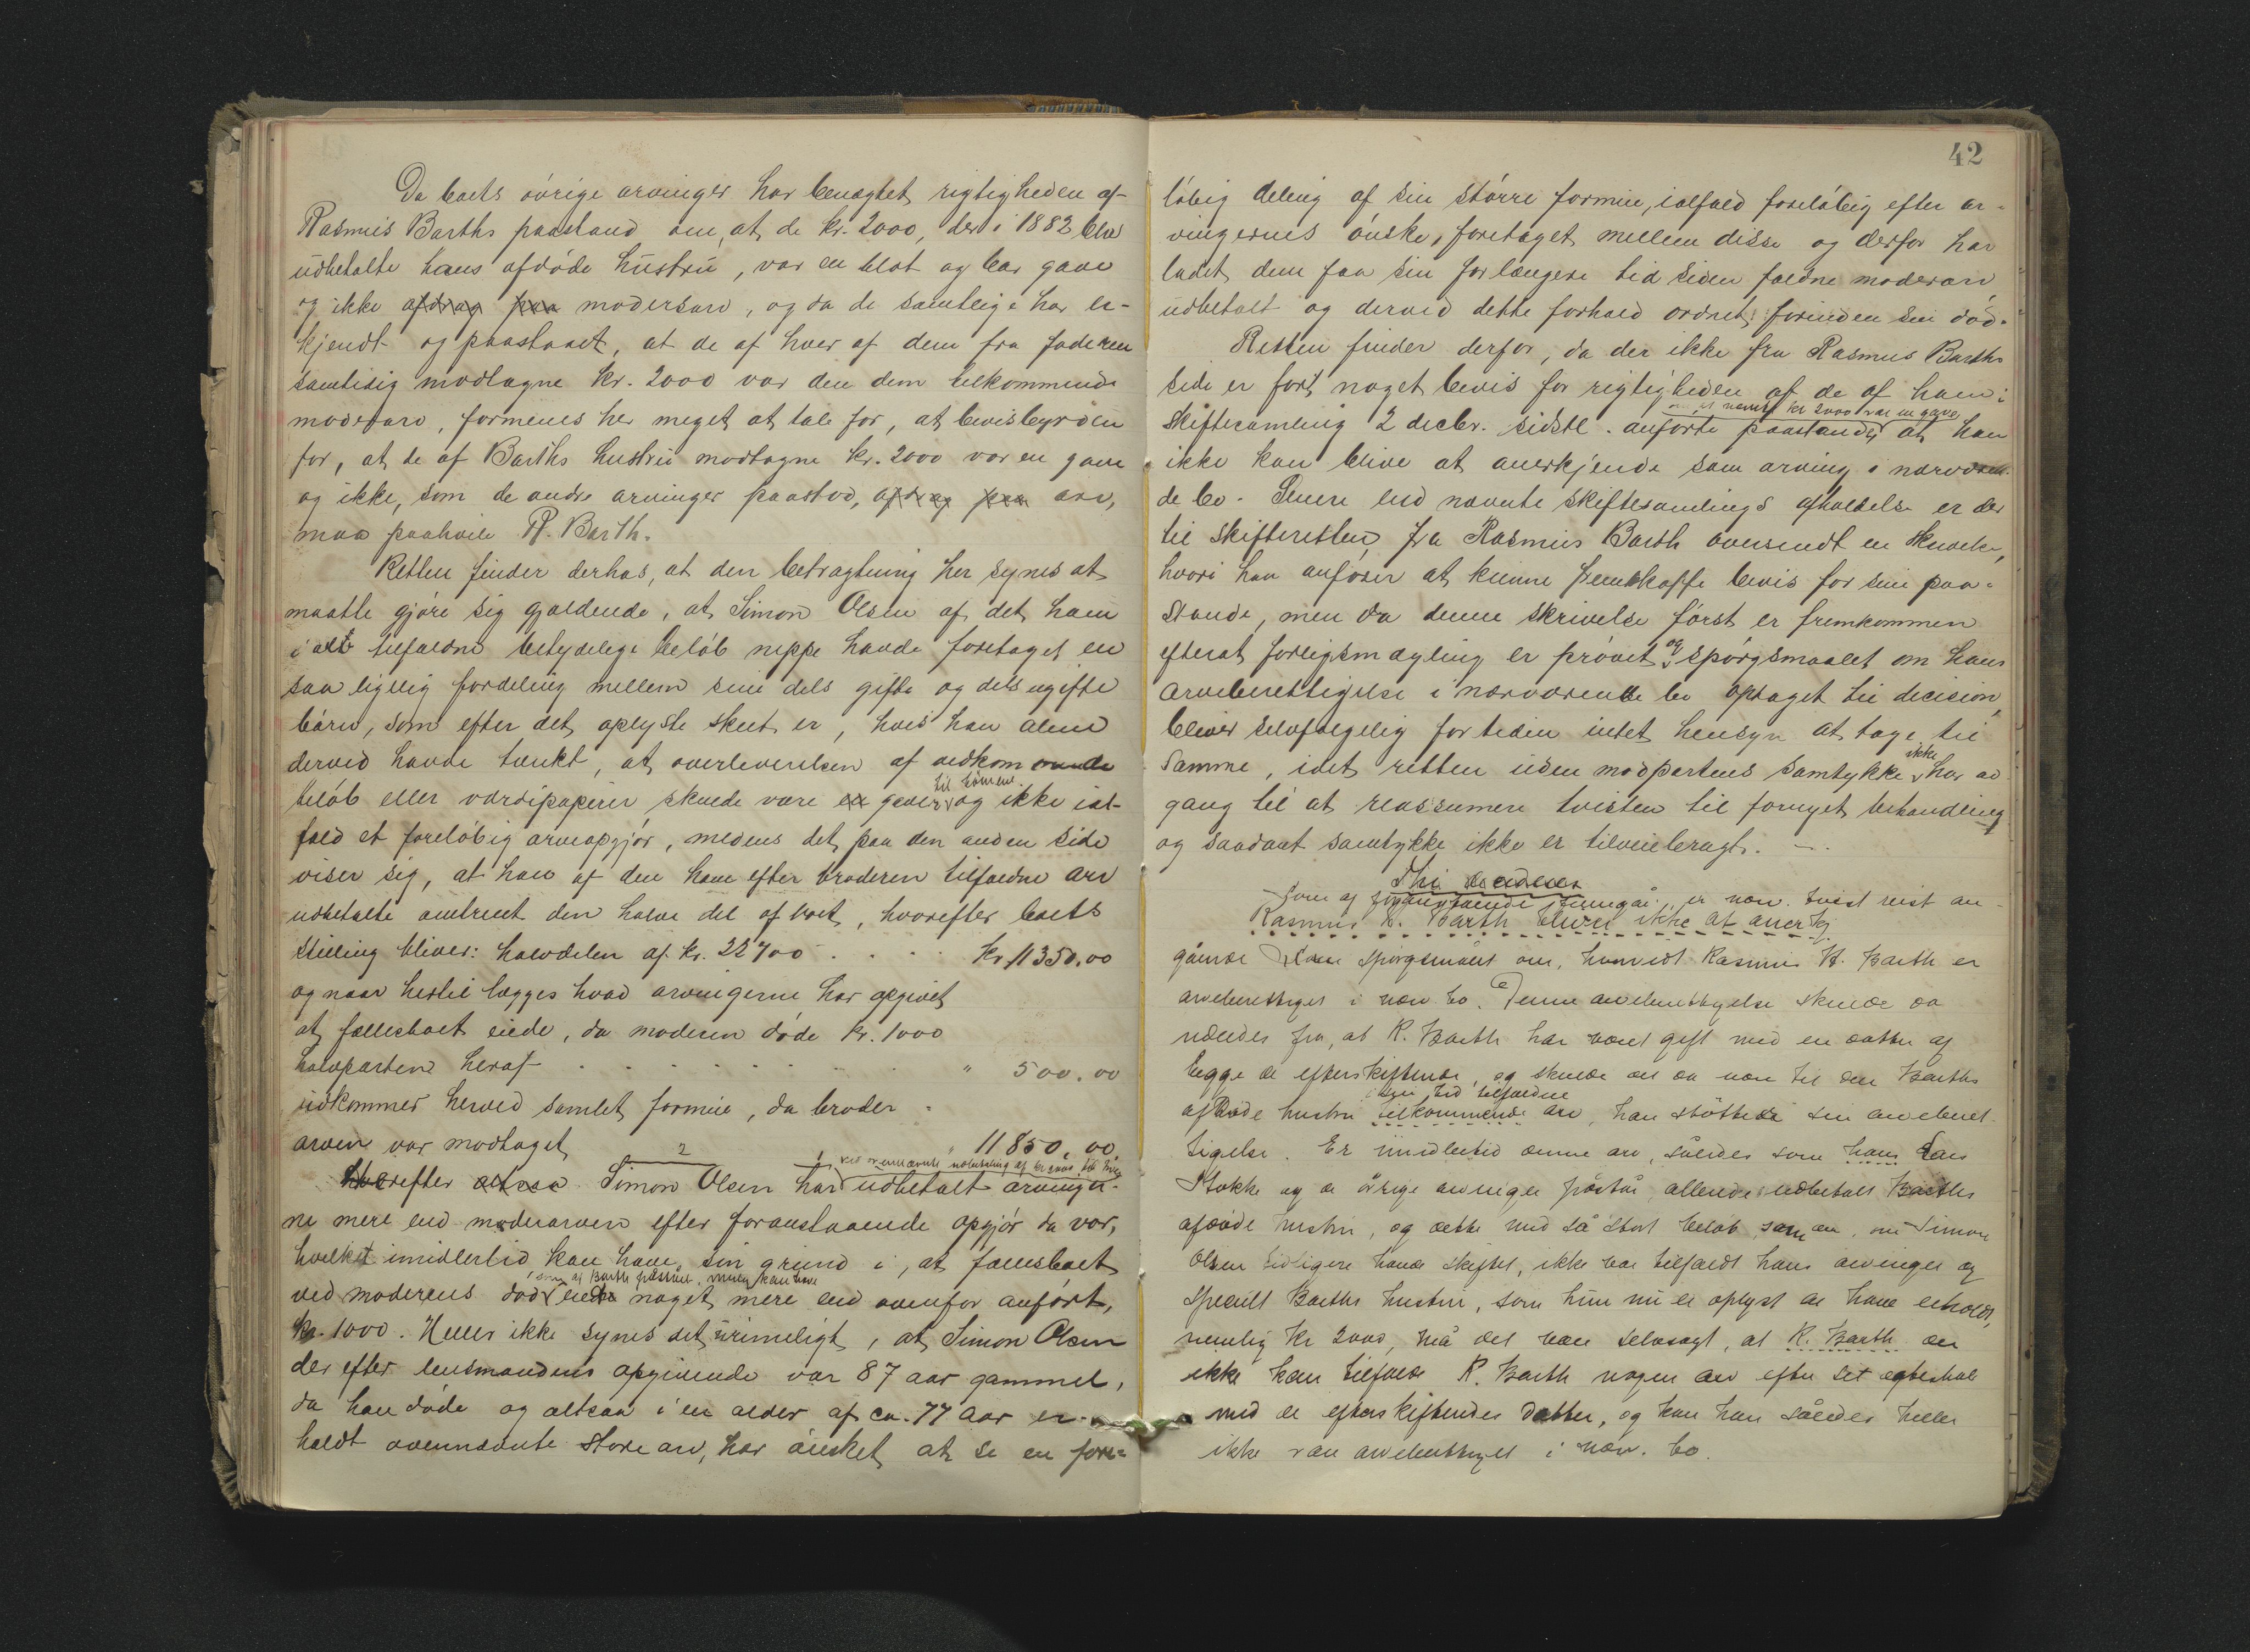 Da boets övrige arvinger har benægtet rigtigheden af
Rasmus Barths paastand om, at de kr. 2000, der i 1882 blev
udbetalte hans afdöde hustru, var en blot og bar gave
og ikke afdrag paa modersarv, og da de samtlige har er-
kjendt og paastaaet, at de af hver af dem fra faderen
samtidig modtagne kr. 2000 var den dem tilkommende
modersarv, formenes her meget at tale for, at bevisbyrden
for, at de af Barths hustru modtagne kr. 2000 var en gave
og ikke, som de andre arvinger paastod, afdrag paa arv,
maa paahvile R. Barth.
Retten finder derhos, at den betragtning her synes at
maatte gjöre sig gjældende, at Simon Olsen af det ham
i alt tilfaldne betydelige belöb neppe havde foretaget en
saa ligelig fordeling mellem sine dels gifte og dels ugifte
börn, som efter det oplyste skeet er, hvis han alene
derved havde tænkt, at overleverelsen af vedkommende
til börnene
belöb eller værdipapirer skulde være en gaver og ikke ial-
fald et foreløbig arveopgjör, medens det paa den anden side
viser sig, at han af den ham efter broderen tilfaldne arv
udbetalte omtrent den halve del af boet, hvorefter boets
stilling bliver: halvdelen af kr. 22700 . . . . kr. 11350.00
og naar hertil lægges hvad arvingerne har opgivet
at fællesboet eiede, da moderen döde kr. 1000
halvparten heraf . . . . . . . . " 500.00
udkommer herved samlet formue, da broder-
arven var modtaget " 11850.00.
2 1 ved ovennævnte udbetaling af kr 2000 til hver
Herefter altsaa Simon Olsen har udbetalt arvinger-
ne mere end moderarven efter foranstaaende opgjör da var,
hvilket imidlertid kan have sin grund i, at fællesboet
som af Barth paastaaet, muligens kan have
ved moderens död eiede noget mere end ovenfor anfört,
kr. 1000. Heller ikke synes det urimeligt, at Simon Olsen
der efter lensmandens opgivende var 87 aar gammel,
da han döde og altsaa i en alder af ca. 77 aar er-
holdt ovennævnte store arv, har önsket at se en fore-
42
löbig deling af sin större formue, ialfald foreløbig efter ar-
vingernes önske, foretaget mellem disse og derfor har
ladet dem faa sin for længere tid siden faldne moderarv
udbetalt og derved dette forhold ordnet forinden sin död.
Retten finder derfor, da der ikke fra Rasmus Barths
side er fört noget bevis for rigtigheden af de af ham i
om at nævnte kr 2000 var en gave
Skiftesamling 2 decbr. sidstl. anförte paastande, at han
ikke kan blive at anerkjende som arving i nærværen-
de bo. Senere end nævnte skiftesamlings afholdelse er der
til skifteretten fra Rasmus Barth oversendt en skrivelse,
hvori han anförer at kunne fremskaffe bevis for sine paa-
stande, men da denne skrivelse först er fremkommen
efterat forligsmægling er prövet og spörgsmaalet om hans
arveberettigelse i nærværende bo optaget til decision,
bliver selvfölgelig for tiden intet hensyn at tage til
ikke
samme, idet retten uden modpartens samtykke har ad-
gang til at reassumere tvisten til fornyet behandling
og saadant samtykke ikke er tilveiebragt. —
Thi
Som af foranstaaende fremgår, er nærv. tvist reist an-
Rasmus H. Barth bliver ikke at anerkj
gående spörgsmålet om, hvorvidt Rasmus H. Barth er
arveberettiget i nærv bo. Denne arveberettigelse skulde da
udledes fra, at R. Barth har været gift med en datter af
begge de efterskiftende, og skulde det da være til den Barths
i sin tid tilfaldne
afdöde hustru tilkommende arv, han stöttede sin arveberet-
tigelse. Er imidlertid denne arv, således som hans Lars
Stokke og de övrige arvinger påstår, allerede udbetalt Barths
afdöde hustru, og dette med så stort belöb, som der, om Simon
Olsen tidligere havde skiftet, ikke var tilfaldt hans arvinger og
specielt Barths hustru, som hun nu er oplyst at have erholdt,
nemlig kr 2000, må det være selvsagt, at R. Barth der
ikke kan tilfalde R. Barth nogen arv efter sit egteskab
med de efterskiftendes datter, og kan han således heller
ikke være arveberettiget i nærv. bo.